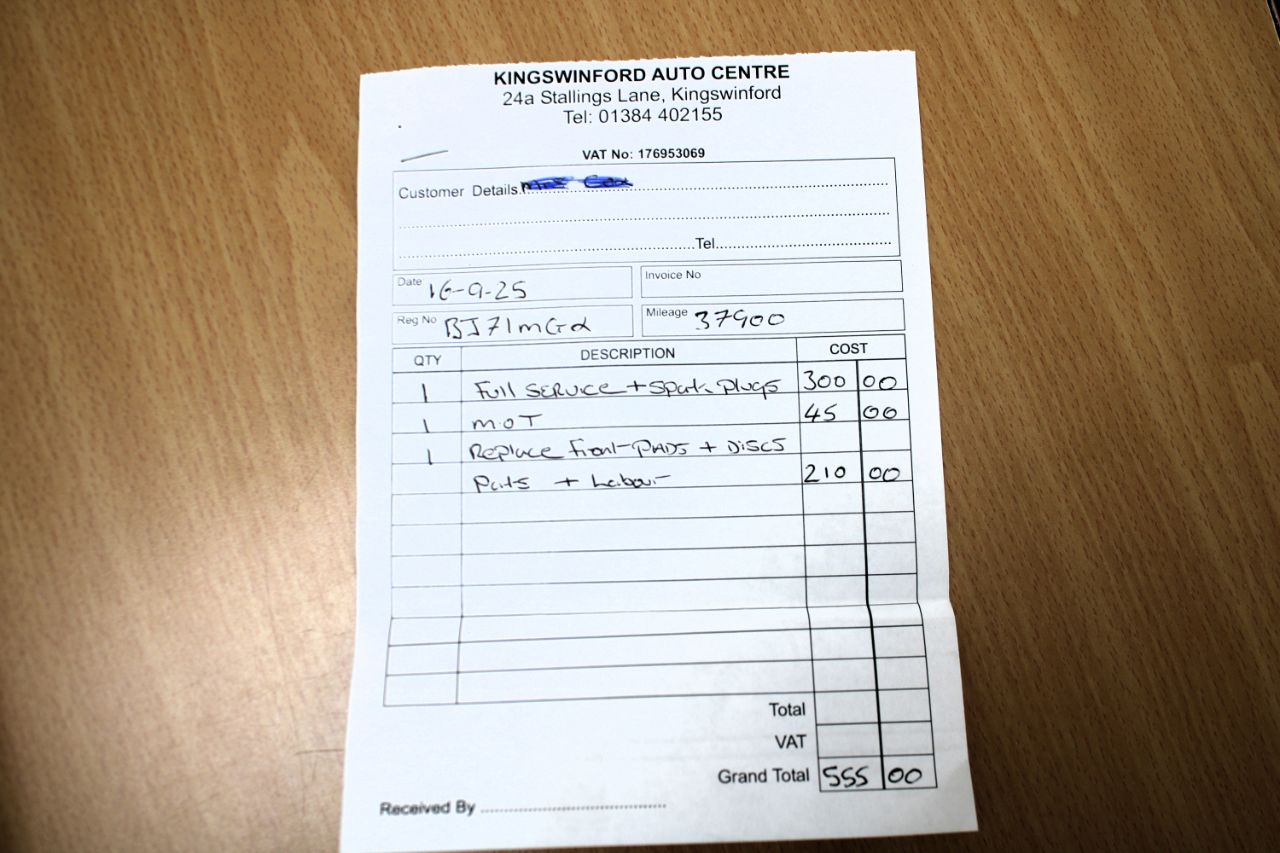 KINGSWINFORD AUTO CENTRE
24a Stallings Lane, Kingswinford
Tel: 01384 402155
VAT No: 176953069
Customer Details
Tel
Date 16-9-25 Invoice No
Reg No Mileage 37900
QTY DESCRIPTION COST
1 Full SERVICE + Spark Plugs 300 00
1 M.O.T 45 00
1 Replace Front PADS + DISCS
Parts + Labour 210 00
Total
VAT
Grand Total 555 00
Received By